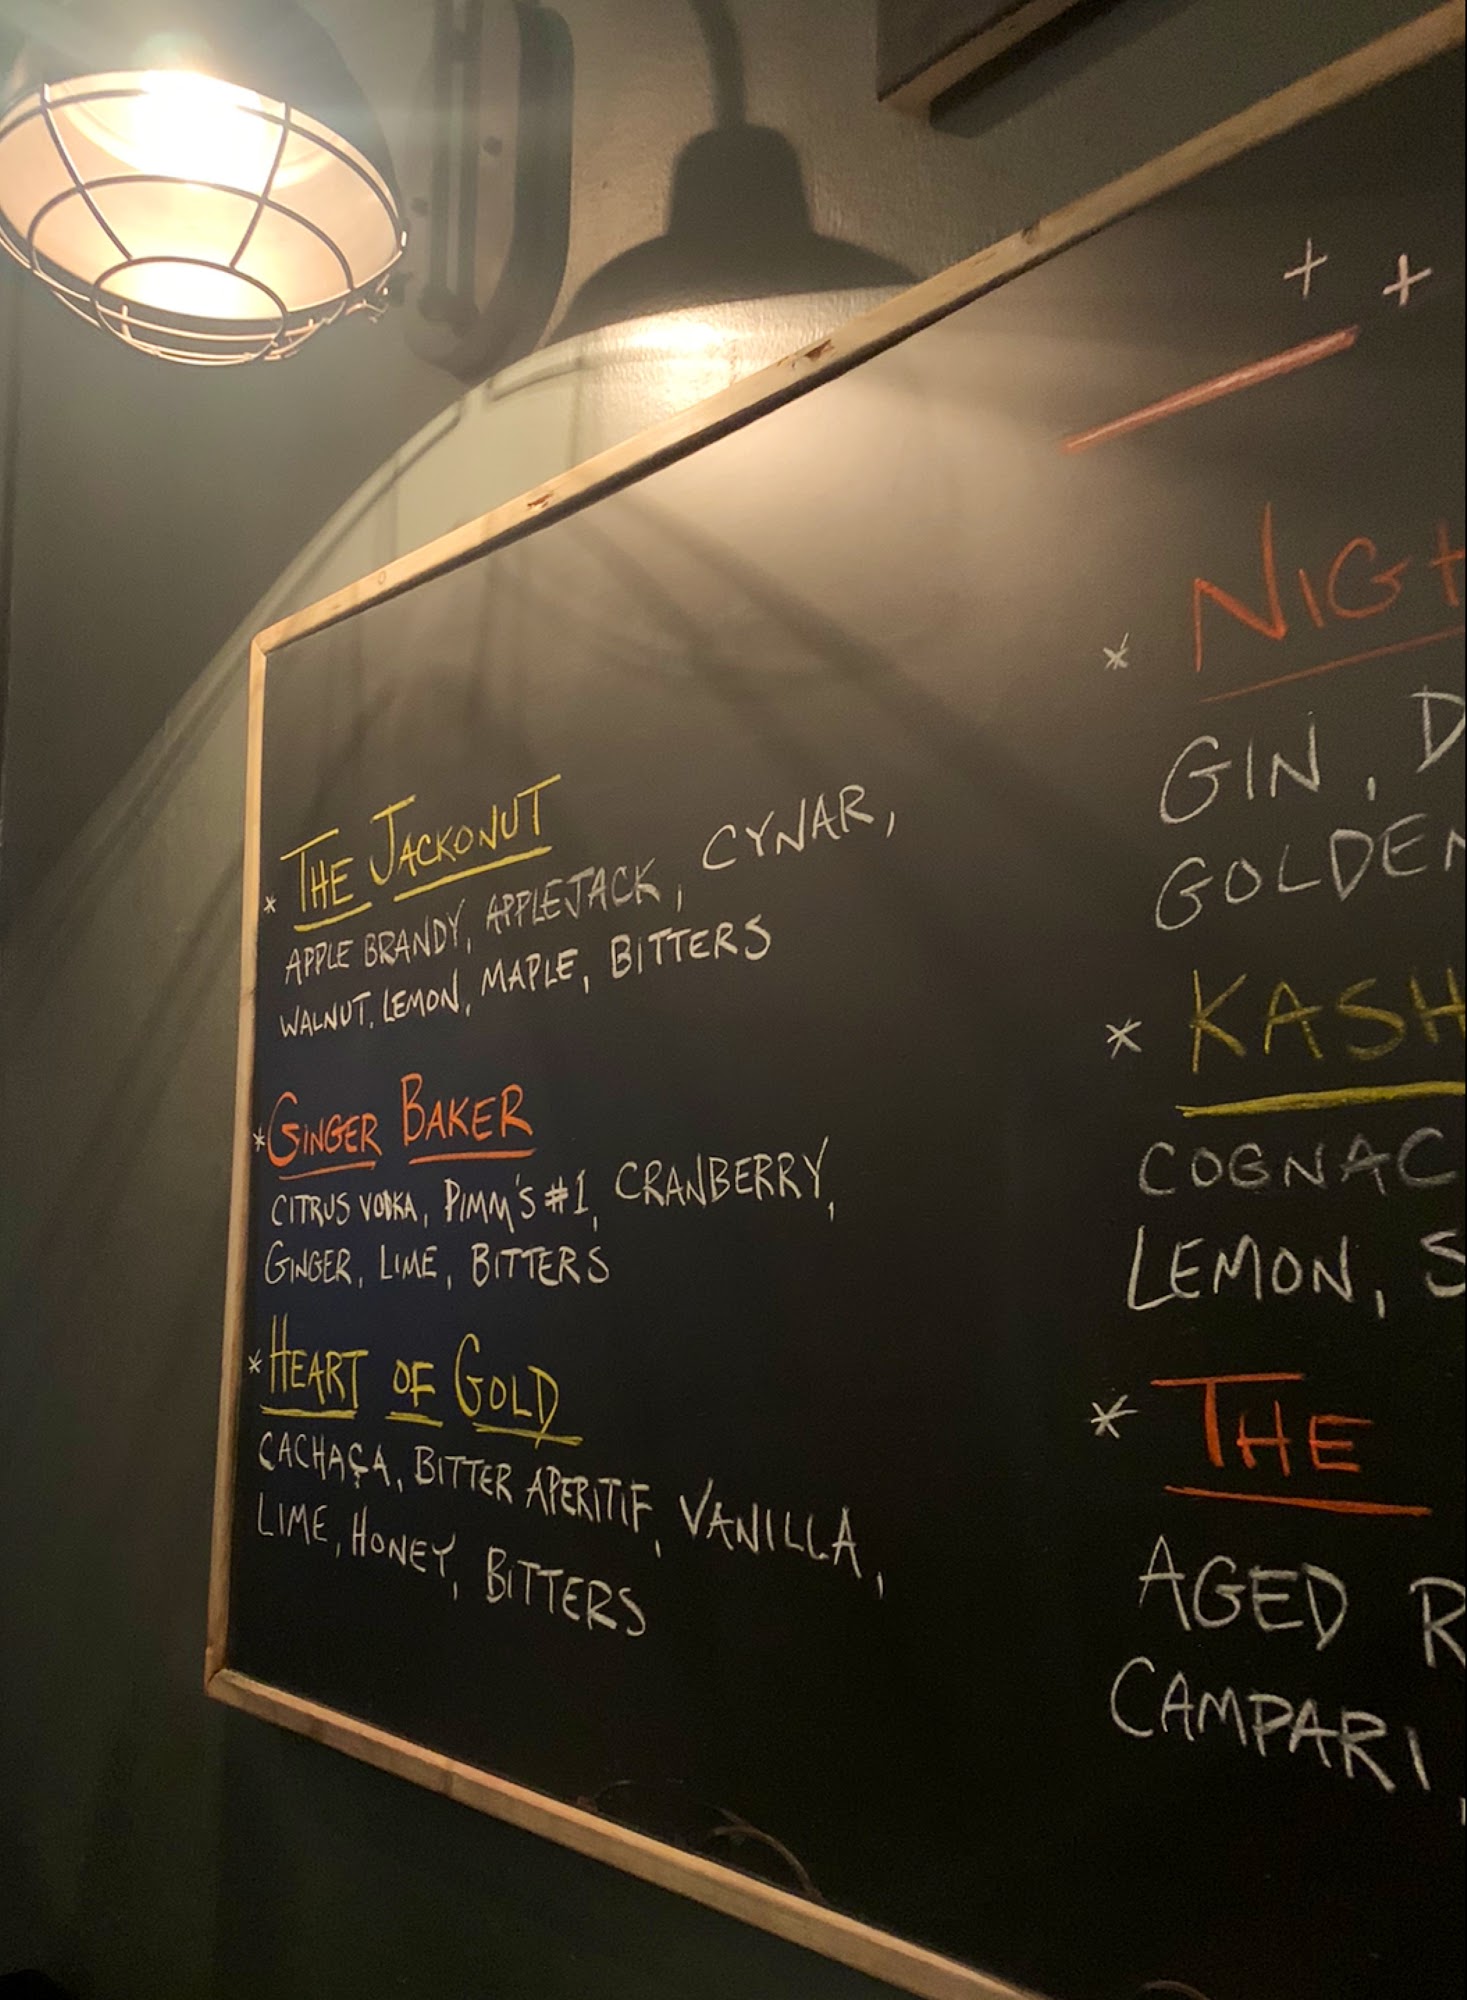 + +
* THE JACKONUT
APPLE BRANDY, APPLEJACK, CYNAR,
WALNUT, LEMON, MAPLE, BITTERS
* GINGER BAKER
CITRUS VODKA, PIMM'S #1, CRANBERRY,
GINGER, LIME, BITTERS
* HEART OF GOLD
CACHAÇA, BITTER APERITIF, VANILLA,
LIME, HONEY, BITTERS
*
GIN,
* KASH
COGNAC
LEMON, S
* THE
AGED R
CAMPARI,